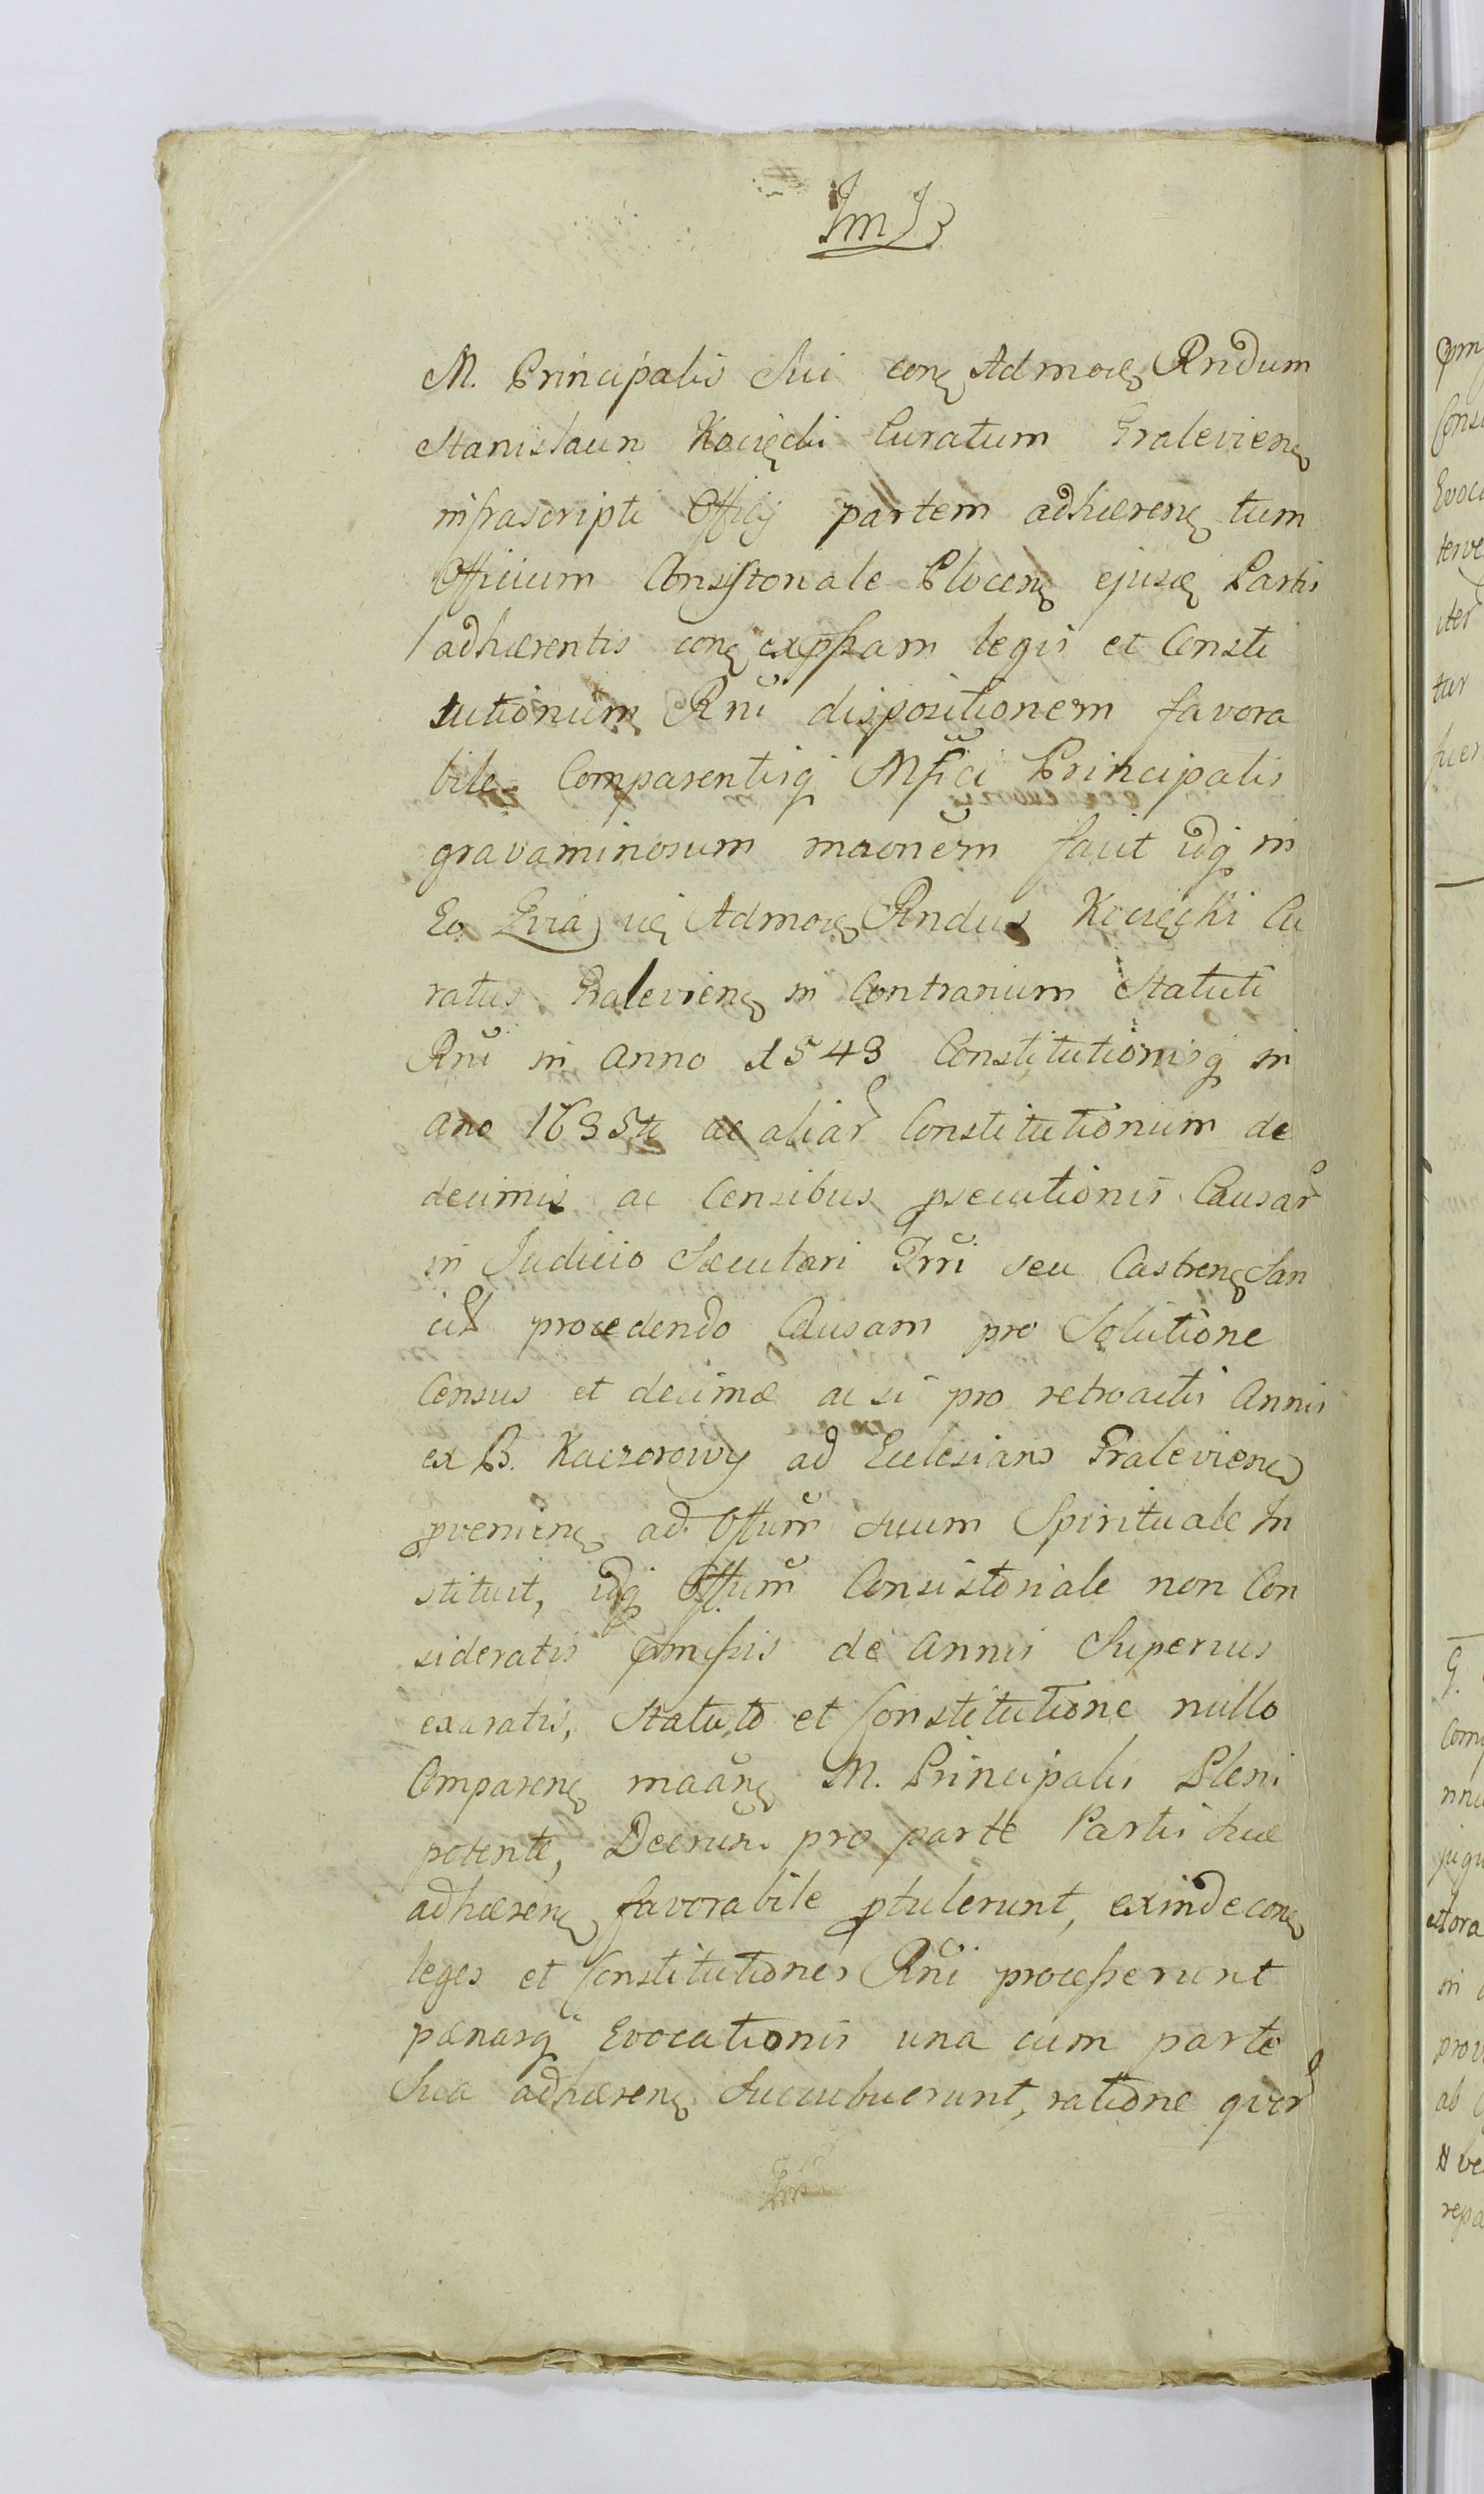 M. Principalis Sui conę Admoeꝫ Rndum
Stanislaum Kocięcki Curatum Graleviens
infrascripti Officij partem adhærenę tum
Officium Consistoriale Plocenę ejusę Partis
adhærentis conę expssam legis et Consti
tutionum Rni dispositionem favora
bile Comparentisq Mfici Principalis
gravaminosum maonem facit idq in
Eo Quia uę Admoeꝫ Rndus Kocięcki Cu
ratus Gralevienę in Contrarium Statuti
Rni in Anno 1543 Constitutionisq in
ano 1635ti ac aliar Constitutionum de
decimis ac Censibus psecutionis Causar
in Judicio Sæculari Trri seu Castrenę San
cit procedendo Causam pro Solutione
Census et decimæ ac si pro retroactis Annis
ex B. Kaczorowy ad Ecclesiam Gralevienę
pvenienę ad Offum suum Spirituale In
stituit, idq Offum Consistoriale non Con
sideratis pmissis de Annis Superius
exaratis, Statuto et Constitutione nullo
Comparenę maanę M. Principalis Pleni
potente, Decrum pro parte Partis suæ
adhærenę favorabile ptulerunt, exinde conę
leges et Constitutiones Rni processerunt
pænasq Evocationis una cum parte
Sua adhærenę Succubuerunt, ratione quor